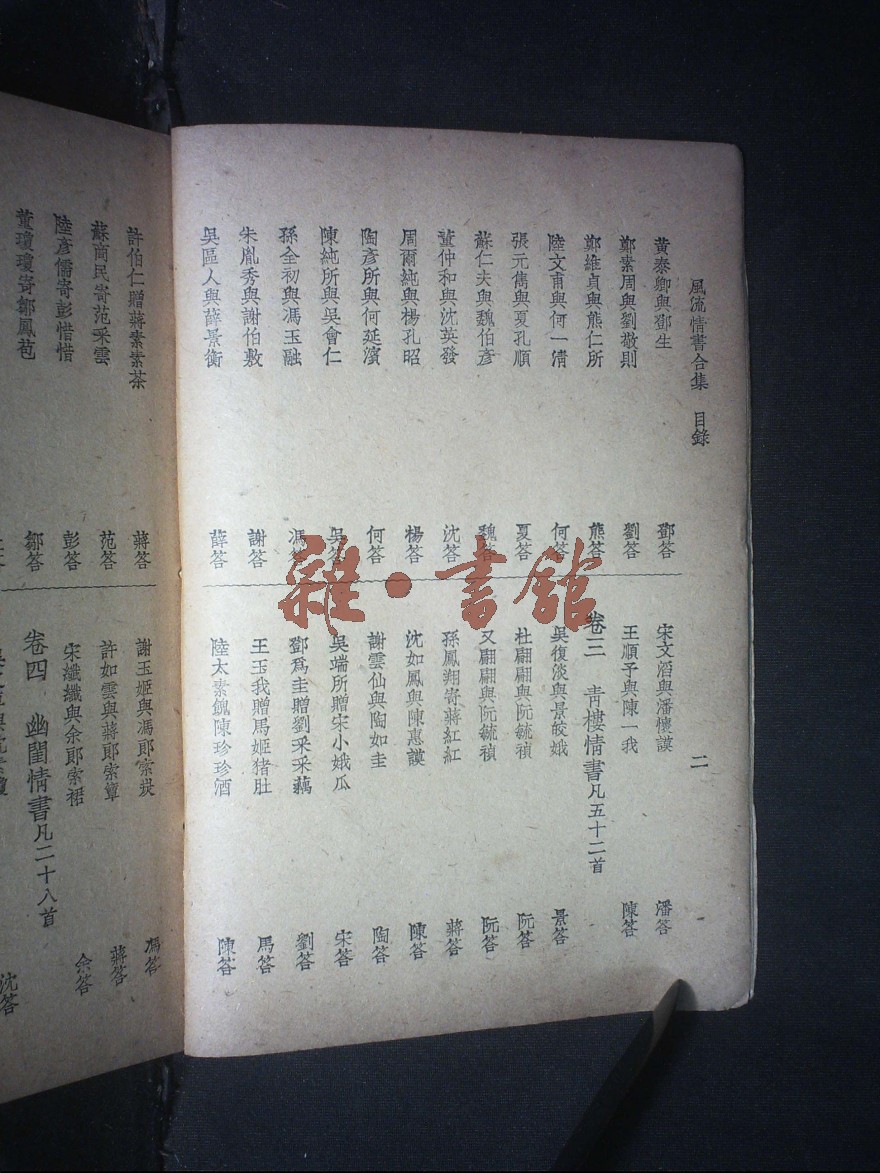 風流情書合集 目錄 二
黃泰卿與鄧生 鄧答
鄭素周與劉敬則 劉答
鄭維貞與熊仁所 熊答
陸文甫與何一清 何答
張元雋與夏孔順 夏答
蘇仁夫與魏伯彥 魏答
董仲和與沈英發 沈答
周爾純與楊孔昭 楊答
陶彥所與何延濱 何答
陳純所與吳會仁 吳答
孫全初與馮玉融 馮答
朱胤秀與謝伯敷 謝答
吳區人與薛景衡 薛答
宋文酒與潘懷謨 潘答
王順予與陳一我 陳答
卷三 青樓情書凡五十二首
吳復淡與景皎娥 景答
杜翩翩與阮毓禎 阮答
又翩翩與阮毓禎 阮答
孫鳳翔寄蔣紅紅 蔣答
沈如鳳與陳惠謨 陳答
謝雲仙與陶如圭 陶答
吳端所贈宋小娥瓜 宋答
鄧爲圭贈劉采采藕 劉答
王玉我贈馬姬猪肚 馬答
陸太素餽陳珍珍酒 陳答
許伯仁贈蔣素素茶 蔣答
蘇商民寄范采雲 范答
陸彥儒寄彭惜惜 彭答
董瓊瓊寄鄒鳳苞 鄒答
謝玉姬與馮郎索炭 馮答
許如雲與蔣郎索簟 蔣答
宋纖纖與余郎索裙 余答
卷四 幽閨情書凡二十八首
沈答
雜·書館